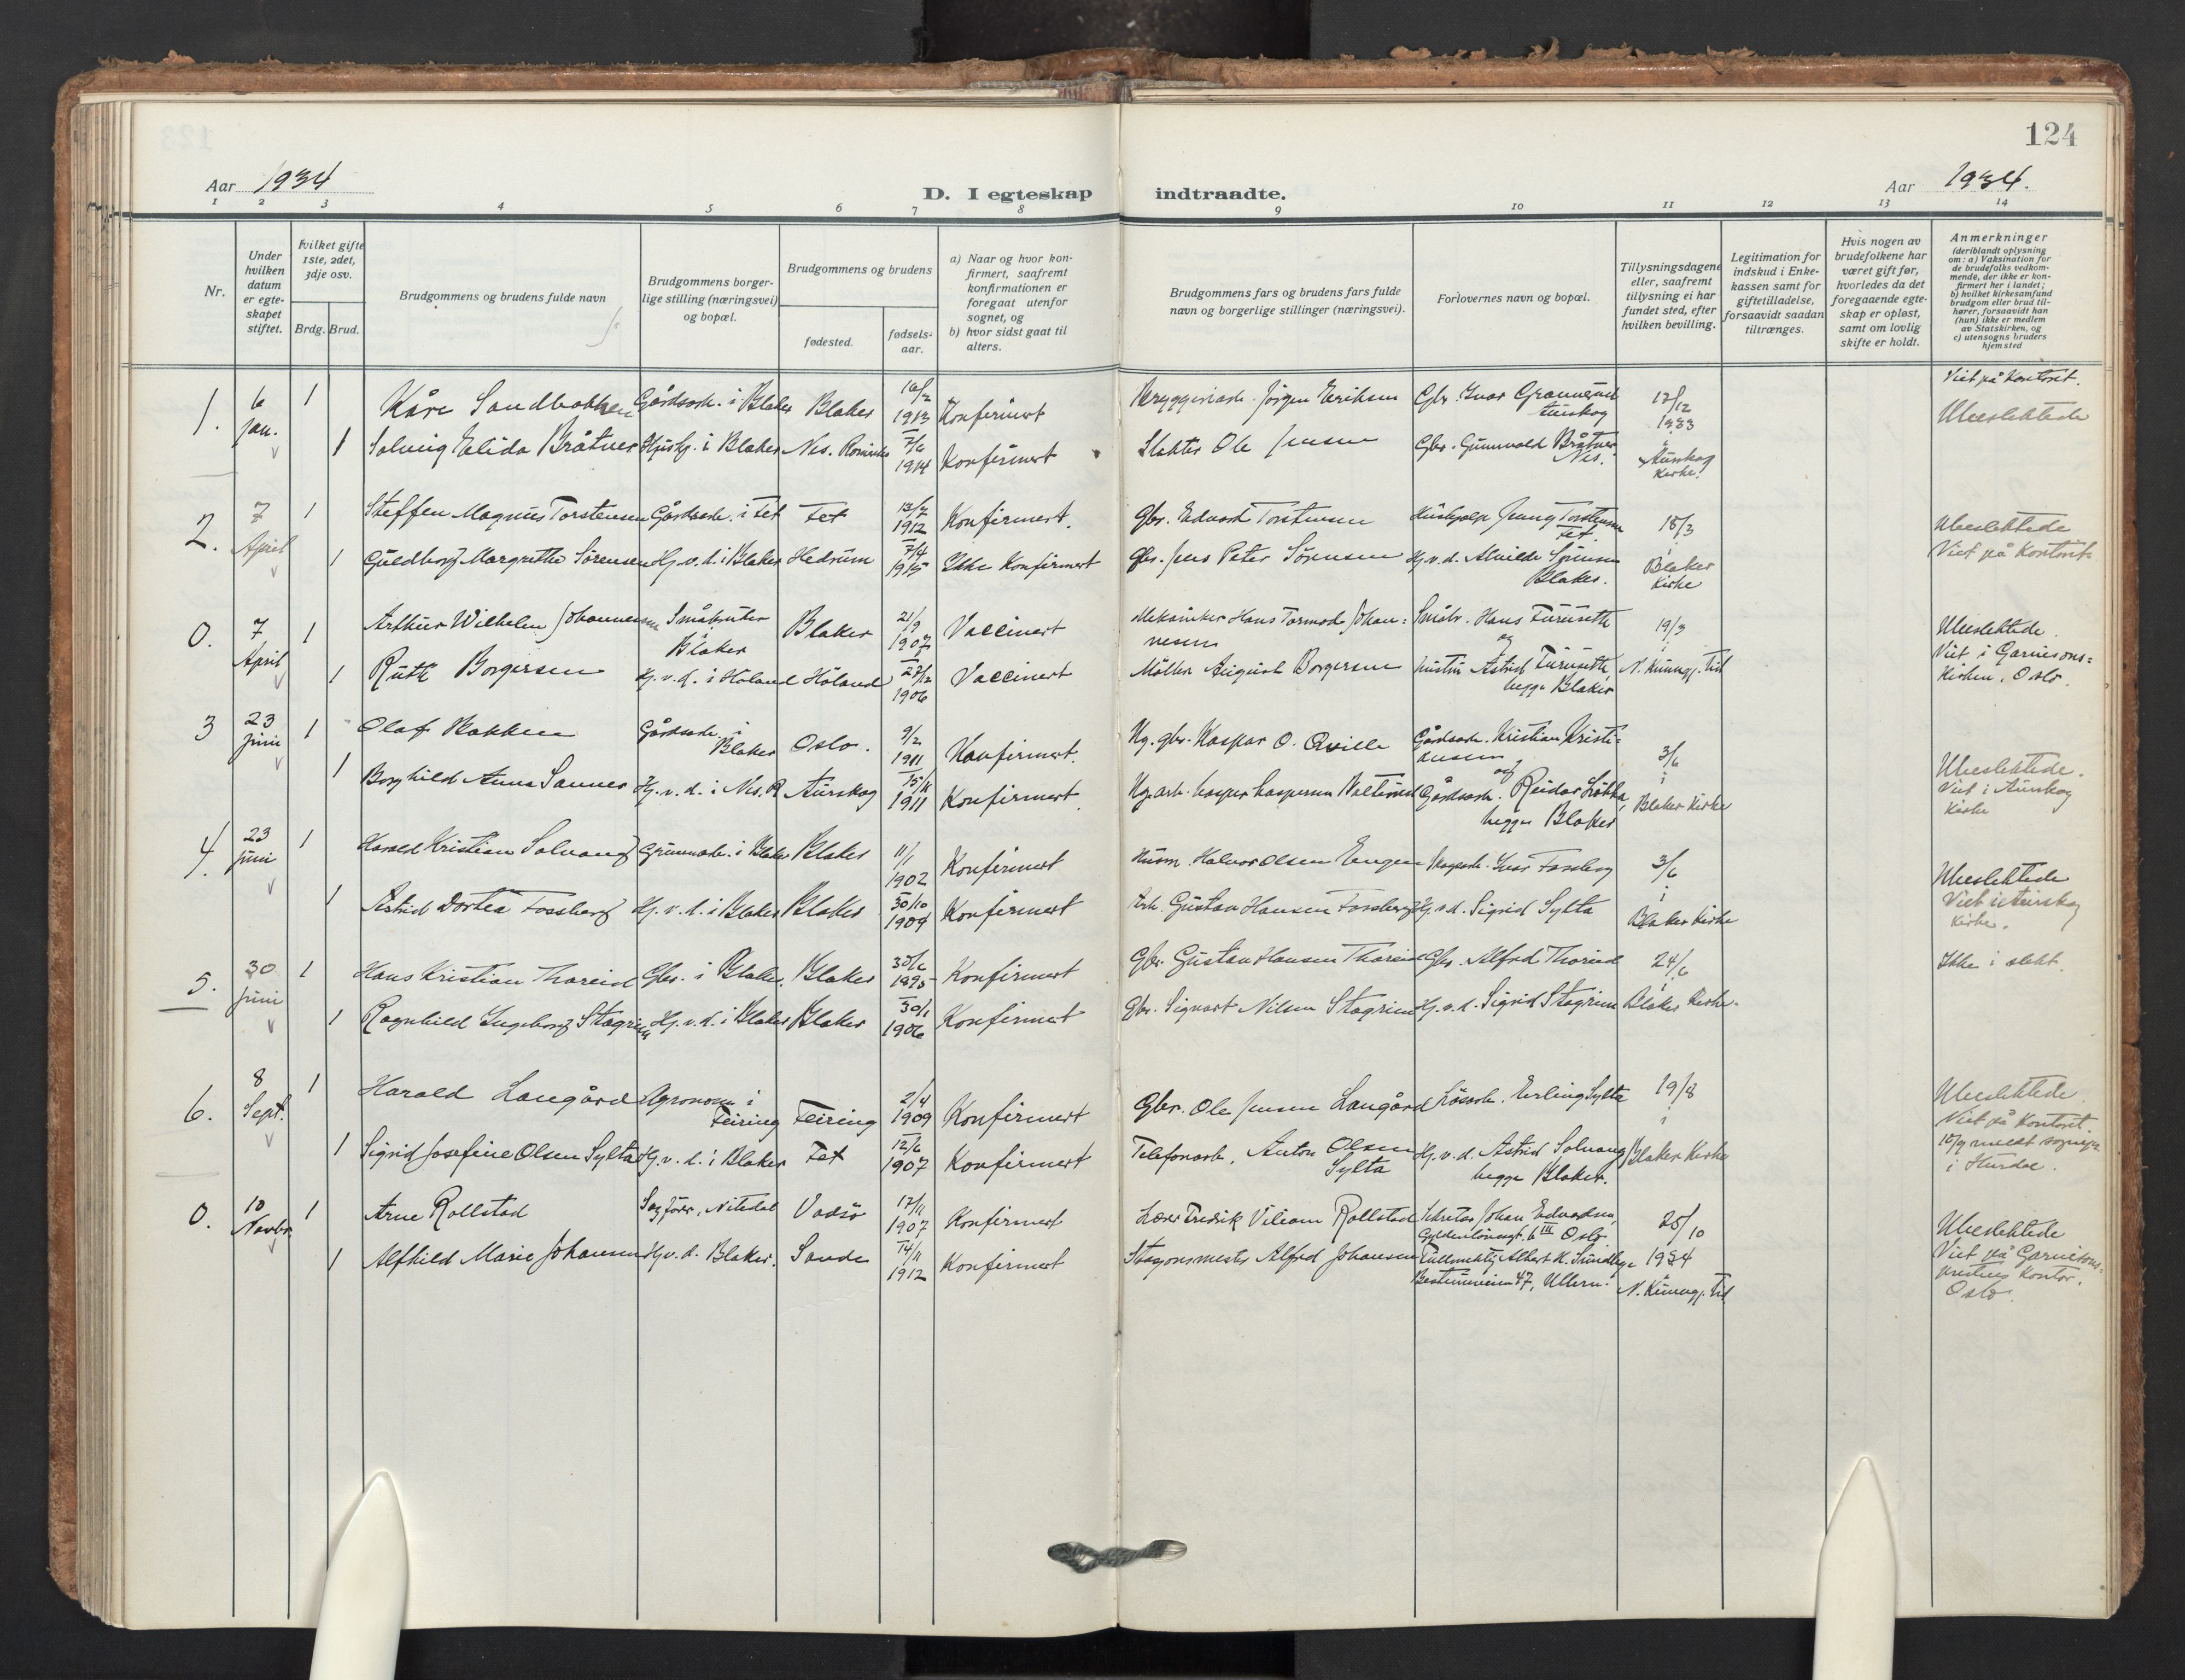 124
Aar 1934
D. I egteskap indtraadte.
Aar 1934.
1 2 3 4 5 6 7 8 9 10 11 12 13 14
Nr.
Under hvilken datum er egteskapet stiftet.
hvilket gifte 1ste, 2det, 3dje osv.
Brdg. Brud.
Brudgommens og brudens fulde navn
Brudgommens borgerlige stilling (næringsvei) og bopæl.
Brudgommens og brudens
fødested.
fødselsaar.
a) Naar og hvor konfirmert, saafremt konfirmationen er foregaat utenfor sognet, og
b) hvor sidst gaat til alters.
Brudgommens fars og brudens fars fulde navn og borgerlige stillinger (næringsvei).
Forlovernes navn og bopæl.
Tillysningsdagene eller, saafremt tillysning ei har fundet sted, efter hvilken bevilling.
Legitimation for indskud i Enkekassen samt for giftetilladelse, forsaavidt saadan tiltrænges.
Hvis nogen av brudefolkene har været gift før, hvorledes da det foregaaende egteskap er opløst, samt om lovlig skifte er holdt.
Anmerkninger (deriblandt oplysning om: a) Vaksination for de brudefolks vedkommende, der ikke er konfirmert her i landet; b) hvilket kirkesamfund brudgom eller brud tilhører, forsaavidt han (hun) ikke er medlem av Statskirken, og c) utensogns bruders hjemsted
1. 6 jan. 1 Kåre Sandbakken Gårdsarb. i Blaker Blaker 16/2 1913 Konfirmert Bryggeriarb. Jörgen Eriksen Gbr. Ivar Grønnerud Aurskog 17/12 1933 i Aurskog Kirke. Viet på kontoret. Ubeslektede
1 Solveig Elida Bråtner Hushj. i Blaker Nes. Romerike 7/6 1914 Konfirmert Slakter Ole Jensen Gbr. Gunnvald Bråtner Nes.
2. 7 April 1 Steffen Magnus Torstensen Gårdsarb. i Fet Fet 13/7 1912 Konfirmert. Gbr. Edvard Torstensen Hushjelp Jenny Torstensen Fet 18/3 i Blaker Kirke Ubeslektede Viet på kontoret
1 Guldborg Margrethe Sørensen Hj.v.d. i Blaker Hedrum 7/4 1915 Ikke Konfirmert Gbr. Jens Peter Sørensen Hj.v.d. Alvilde Sørensen Blaker.
0. 7 April 1 Arthur Wilhelm Johannesen Småbruker Blaker Blaker 21/9 1907 Vaccinert Mekaniker Hans Tormod Johannesen Småbr. Hans Furuseth og 19/3 i N. Kunngj. Tid Ubeslektede. Viet i Garnisonskirken, Oslo.
1 Ruth Borgersen Hj.v.d. i Höland Höland 23/12 1906 Vaccinert Möller August Borgersen hustru Astrid Furuseth, begge Blaker
3 23 juni 1 Olaf Bakken Gårdsarb. i Blaker Oslo. 9/2 1911 Konfirmert. Ug. gbr. Kaspar O. Qville Gårdsarb. Kristian Kristiansen og 3/6 i Blaker Kirke Ubeslektede. Viet i Aurskog kirke
1 Borghild Anna Sannes Hj.v.d. i Nes. R Aurskog 15/11 1911 Konfirmert. Ug. arb. Kasper Kaspersen Gårdsarb. Reidar Løkka, begge Blaker
4. 23 juni 1 Harald Kristian Solvang Grunnarb. i Blaker Blaker 11/1 1902 Konfirmert Husm. Halvor Olsen Engen Skogsarb. Ivar Fossberg 3/6 i Blaker kirke Ubeslektede Viet i Aurskog kirke.
1 Astrid Dortea Fossberg Hj.v.d. i Blaker Blaker 30/10 1909 Konfirmert Arb. Gustav Hansen Fossberg Hj.v.d. Sigrid Sylta
5. 30 juni 1 Hans Kristian Thoreid Gbr. i Blaker. Blaker 30/6 1895 Konfirmert Gbr. Gustav Hansen Thoreid Gbr. Alfred Thoreid 24/6 i Blaker Kirke. Ikke i slekt.
1 Ragnhild Ingeborg Stagrim Hj.v.d. i Blaker Blaker 30/1 1906 Konfirmert Gbr. Sigvart Nilsen Stagrim Hj.v.d. Sigrid Stagrim
6. 8 Sept. 1 Harald Langård Agronom i Feiring Feiring 2/4 1909 Konfirmert Gbr. Ole Jensen Langård Løsarb. Erling Sylta 19/8 i Blaker Kirke Ubeslektede. Viet på kontoret. 10/9 meldt sognepr. i Hurdal.
1 Sigrid Josefine Olsen Sylta Hj.v.d. i Blaker Fet 12/6 1907 Konfirmert Telefonarb. Anton Olsen Sylta Hj.v.d. Astrid Solvang begge Blaker.
0. 10 Novbr. 1 Arne Rollstad Sagfører, Nitedal Vadsø 17/11 1907 Konfirmert Lærer Fredrik Viliam Rollstad Sekretær Johan Edvardsen, Gyldenløvesgt. 6 III Oslo 25/10 1934 N. Kunngj. Tid Ubeslektede Viet på Garnisonsprestens kontor, Oslo.
1 Alfhild Marie Johansen Hj.v.d. Blaker. Sande 14/11 1912 Konfirmert Stasjonsmester Alfred Johansen Fullmektig Albert K. Sundbye Bestumveien 47, Ullern.